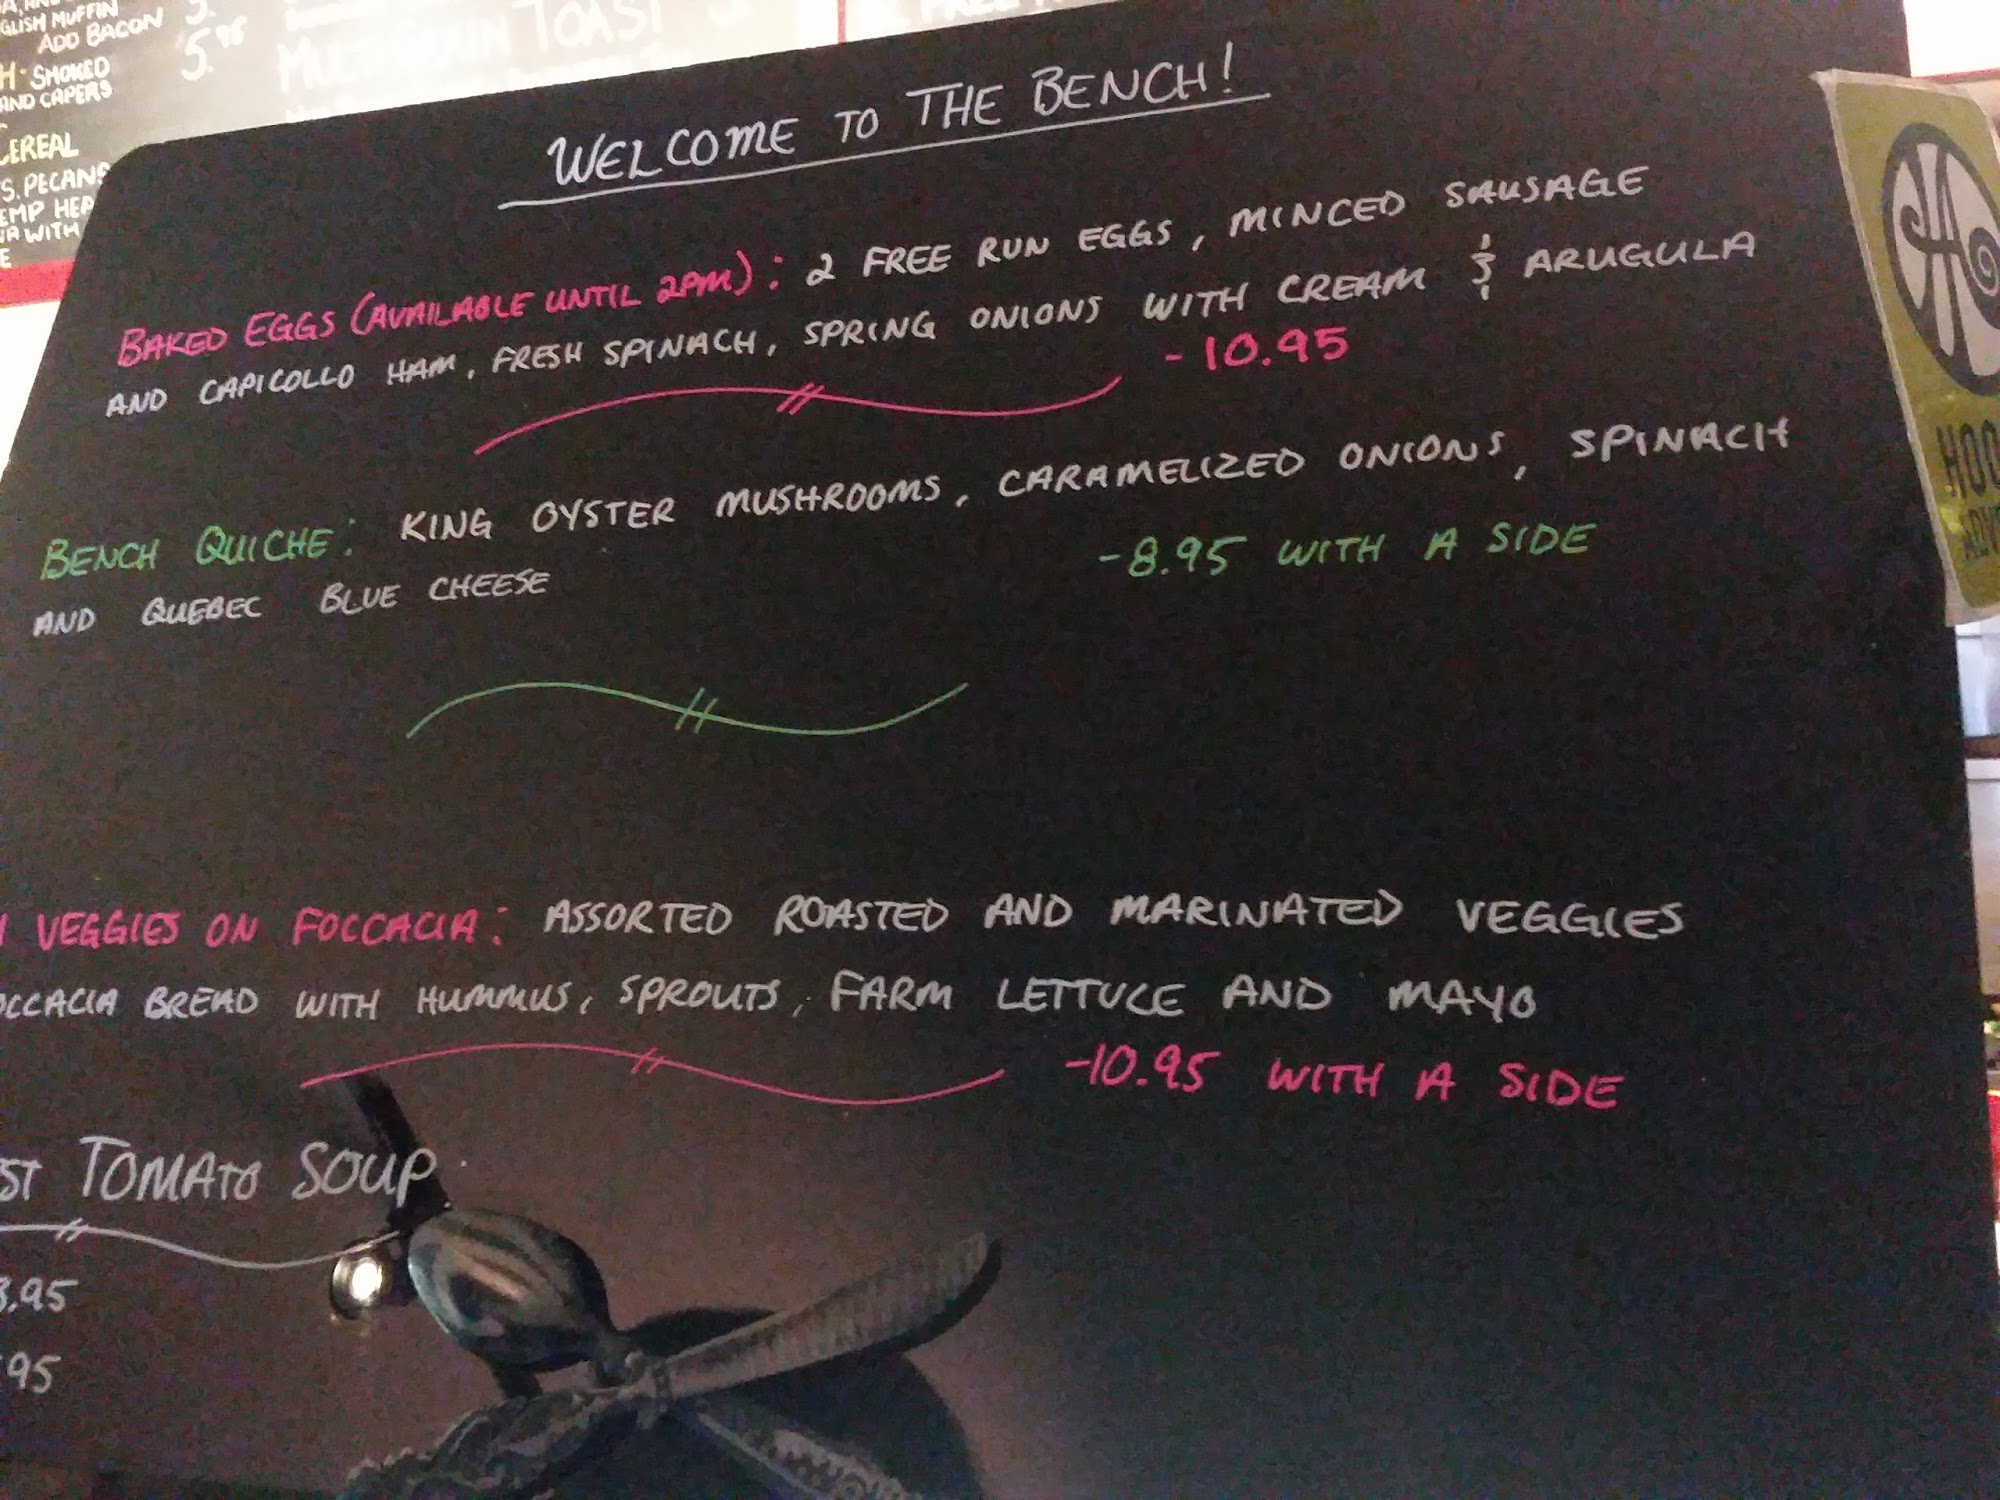 GLISH MUFFIN
ADD BACON
5.95
SMOKED
AND CAPERS
CEREAL
S, PECANS
WITH
MULTIGRAIN TOAST
WELCOME TO THE BENCH!
BAKED EGGS (AVAILABLE UNTIL 2PM): 2 FREE RUN EGGS, MINCED SAUSAGE
AND CAPICOLLO HAM, FRESH SPINACH, SPRING ONIONS WITH CREAM & ARUGULA
-10.95
BENCH QUICHE: KING OYSTER MUSHROOMS, CARAMELIZED ONIONS, SPINACH
AND QUEBEC BLUE CHEESE
-8.95 WITH A SIDE
VEGGIES ON FOCCACIA: ASSORTED ROASTED AND MARINATED VEGGIES
OCCACIA BREAD WITH HUMMUS, SPROUTS, FARM LETTUCE AND MAYO
-10.95 WITH A SIDE
ST TOMATO SOUP
3.95
95
HOO
ADV